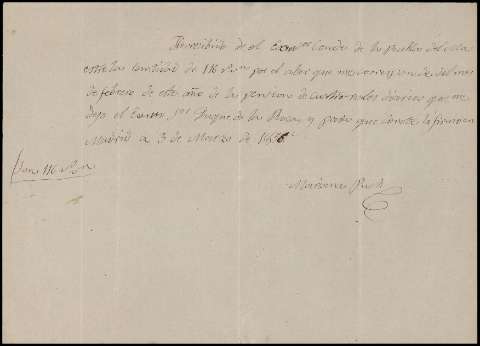 He recibido de el Exmo Conde de la Puebla del Maes
estre la cantidad de 116 Rs vn por el haber que me corresponde del mes
de febrero de este año de la pension de cuatro reales diarios que me
dejo el Exmo Sor Duque de la Roca, y para que conste lo firmo en
Madrid a 3 de Marzo de
Son 116 Rs vn
Mariana